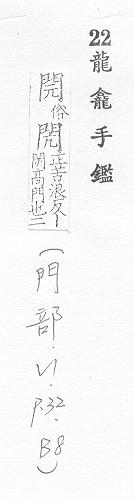 22 龍龕手鑑
俗閌正苦浪反丨
高門也二
(門部.V1.P.32.B8)